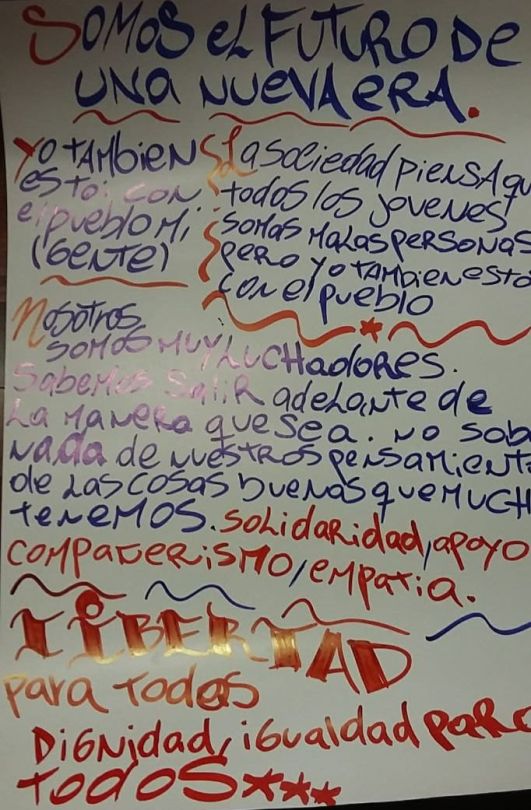 SOMOS el FUTURO DE
UNA NUEVA eRA.
YO tAMbieN
esToi coN
el pueblo Mi
(GeNTe)
La sociedad pieNSA qu
todos los joveNes
somas MaLas peRSoNAS
peRo yo tAMbieN esto
coN el pueblo
Nosotros
somos MUY LUCHadoRes.
Sabemos SaliR adeLaNte de
La MaNeRa que sea. No sab
Nada de NuestRos peNsaMieNt
de Las cosas bueNas que MUCH
teNeMOS. SoLidaRidad, apoyo
COMPañeRiSMO, eMpatia.
LIBERTAD
paRa todos
DiGNidad, iGualdad paRa
todoS***